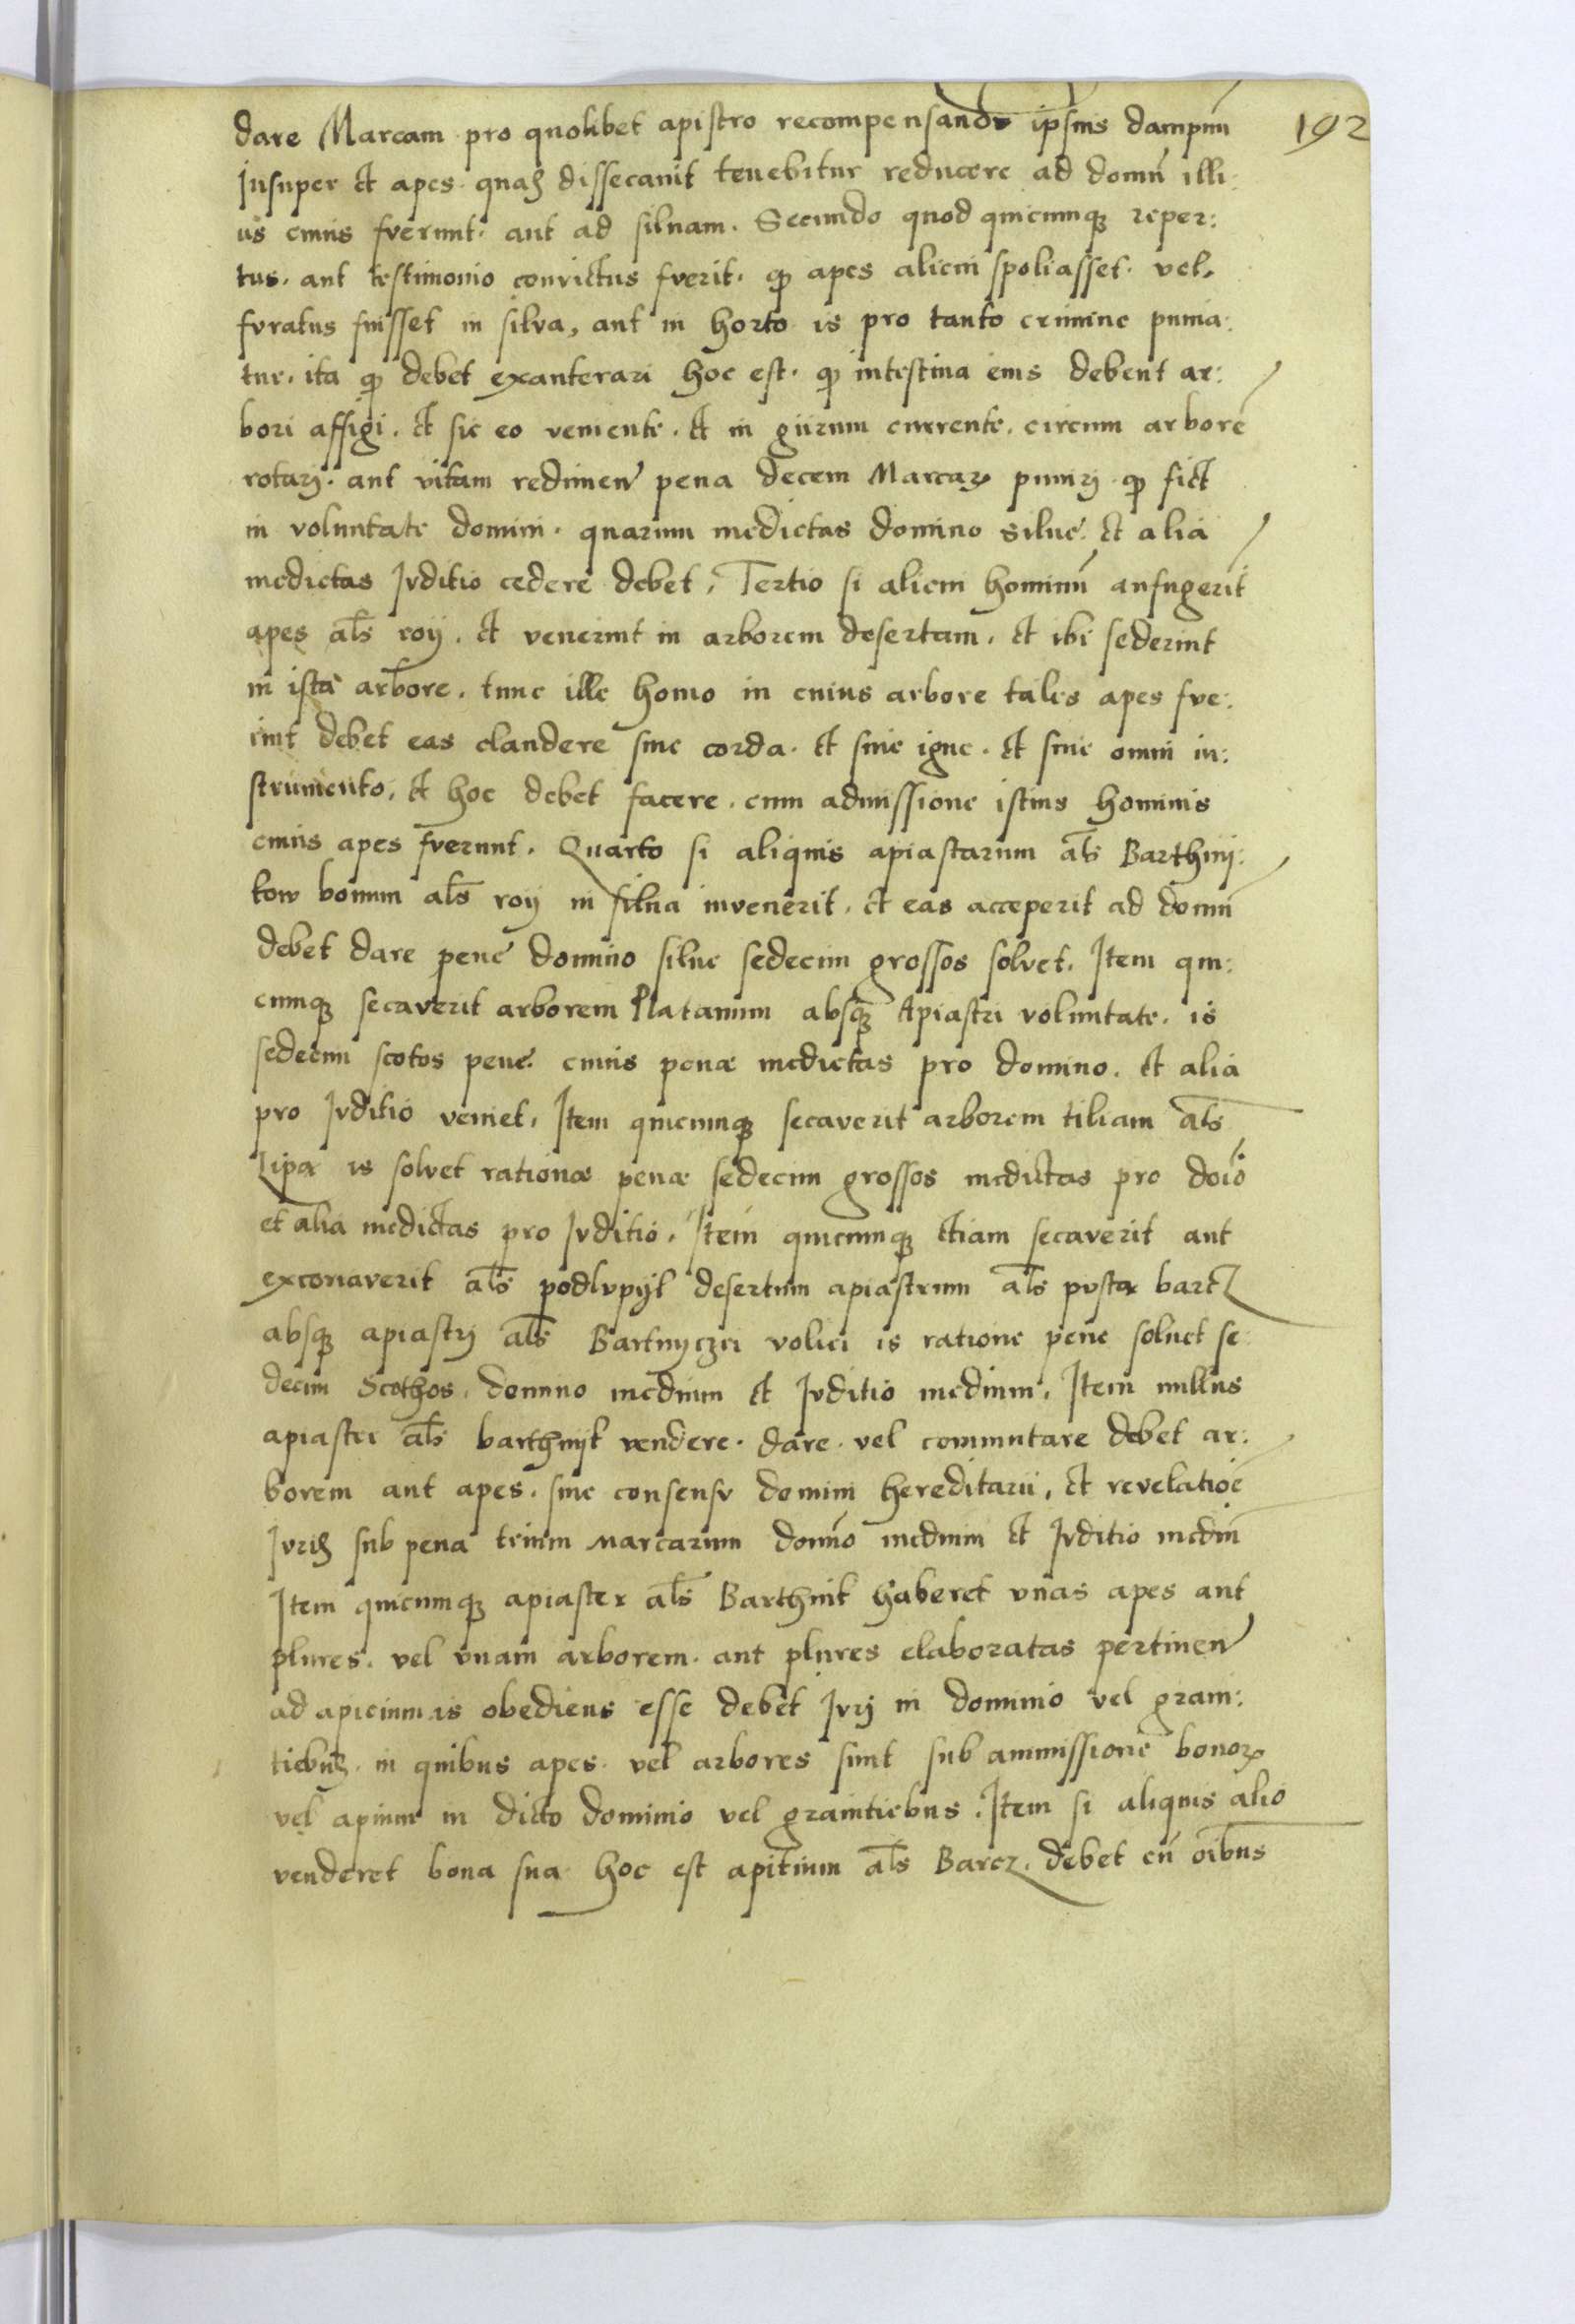 192
dare Marcam pro quolibet apistro recompensando ipsius dampnū
Insuper et apes quas dissecauit tenebitur reducere ad domū illi:
us cuius fverunt. aut ad siluam. Secundo quod quicumqꝫ reper:
tus. aut testimonio convictus fverit. ꝙ apes alicui spoliasset. vel
fvratus fuisset in silva, aut in horto is pro tanto crimine punia:
tur. ita ꝙ debet exanterari hoc est. ꝙ intestina eius debent ar:
bori affigi. et sic eo veniente. et in giirum currente. circum arborē
rotarj. aut vitam redimen̄ pena decem Marcaꝝ punirj ꝙ fiet
in voluntate domini. quarum medietas domino silue. et alia
medietas Jvditio cedere debet. Tertio si alicui hominū aufugerīt
apes als̄ roij. et venerint in arborem desertam. et ibi sederint
in ista arbore. tunc ille homo in cuius arbore tales apes fve:
rint debet eas claudere sine corda. et sine igne. et sine omni in:
strumento. et hoc debet facere. cum admissione istius hominis
cuius apes fverunt. Quarto si aliquis apiastarum als̄ Barthnij:
kow bonum als̄ roij in silua invenerit. et eas acceperit ad domū
debet dare pene domino silue sedecim grossos solvet. Item qui:
cumqꝫ secaverit arborem Platanum absqꝫ Apiastri voluntate. is
sedecim scotos pene. cuius penæ medietas pro domino. et alia
pro Jvditio veniet. Item quicumqꝫ secaverit arborem tiliam als̄
Lipæ is solvet rationæ penæ sedecim grossos medietas pro doīo
et alia medietas pro Jvditio. Item quicumqꝫ etiam secaverit aut
exconaverit als̄ podlvpijl desertum apiastrum als̄ pvsta bartz
absqꝫ apiastrj als̄ Bartnyczei volici is ratione pene soluet se:
decim Scothos. domino medium et Jvditio medium. Item nullus
apiastri als̄ barthnijk vendere. dare. vel commutare debet ar:
borem aut apes. sine consensv domini hereditarii. et revelatiōe
Jvris sub pena trium Marcarum domīo medium et Jvditio mediū
Item quicumqꝫ apiaster als̄ Barthnik haberet vnas apes aut
plures. vel vnam arborem. aut plures elaboratas pertinen̄
ad apicium is obediens esse debet Jvrj in dominio vel gram:
tiebus. in quibus apes. vel arbores sunt sub ammissione bonoꝝ
vel apium in dicto dominio vel gramtiebus. Item si aliquis alio
venderet bona sua hoc est apitium als̄ Barcz. debet cū oībus